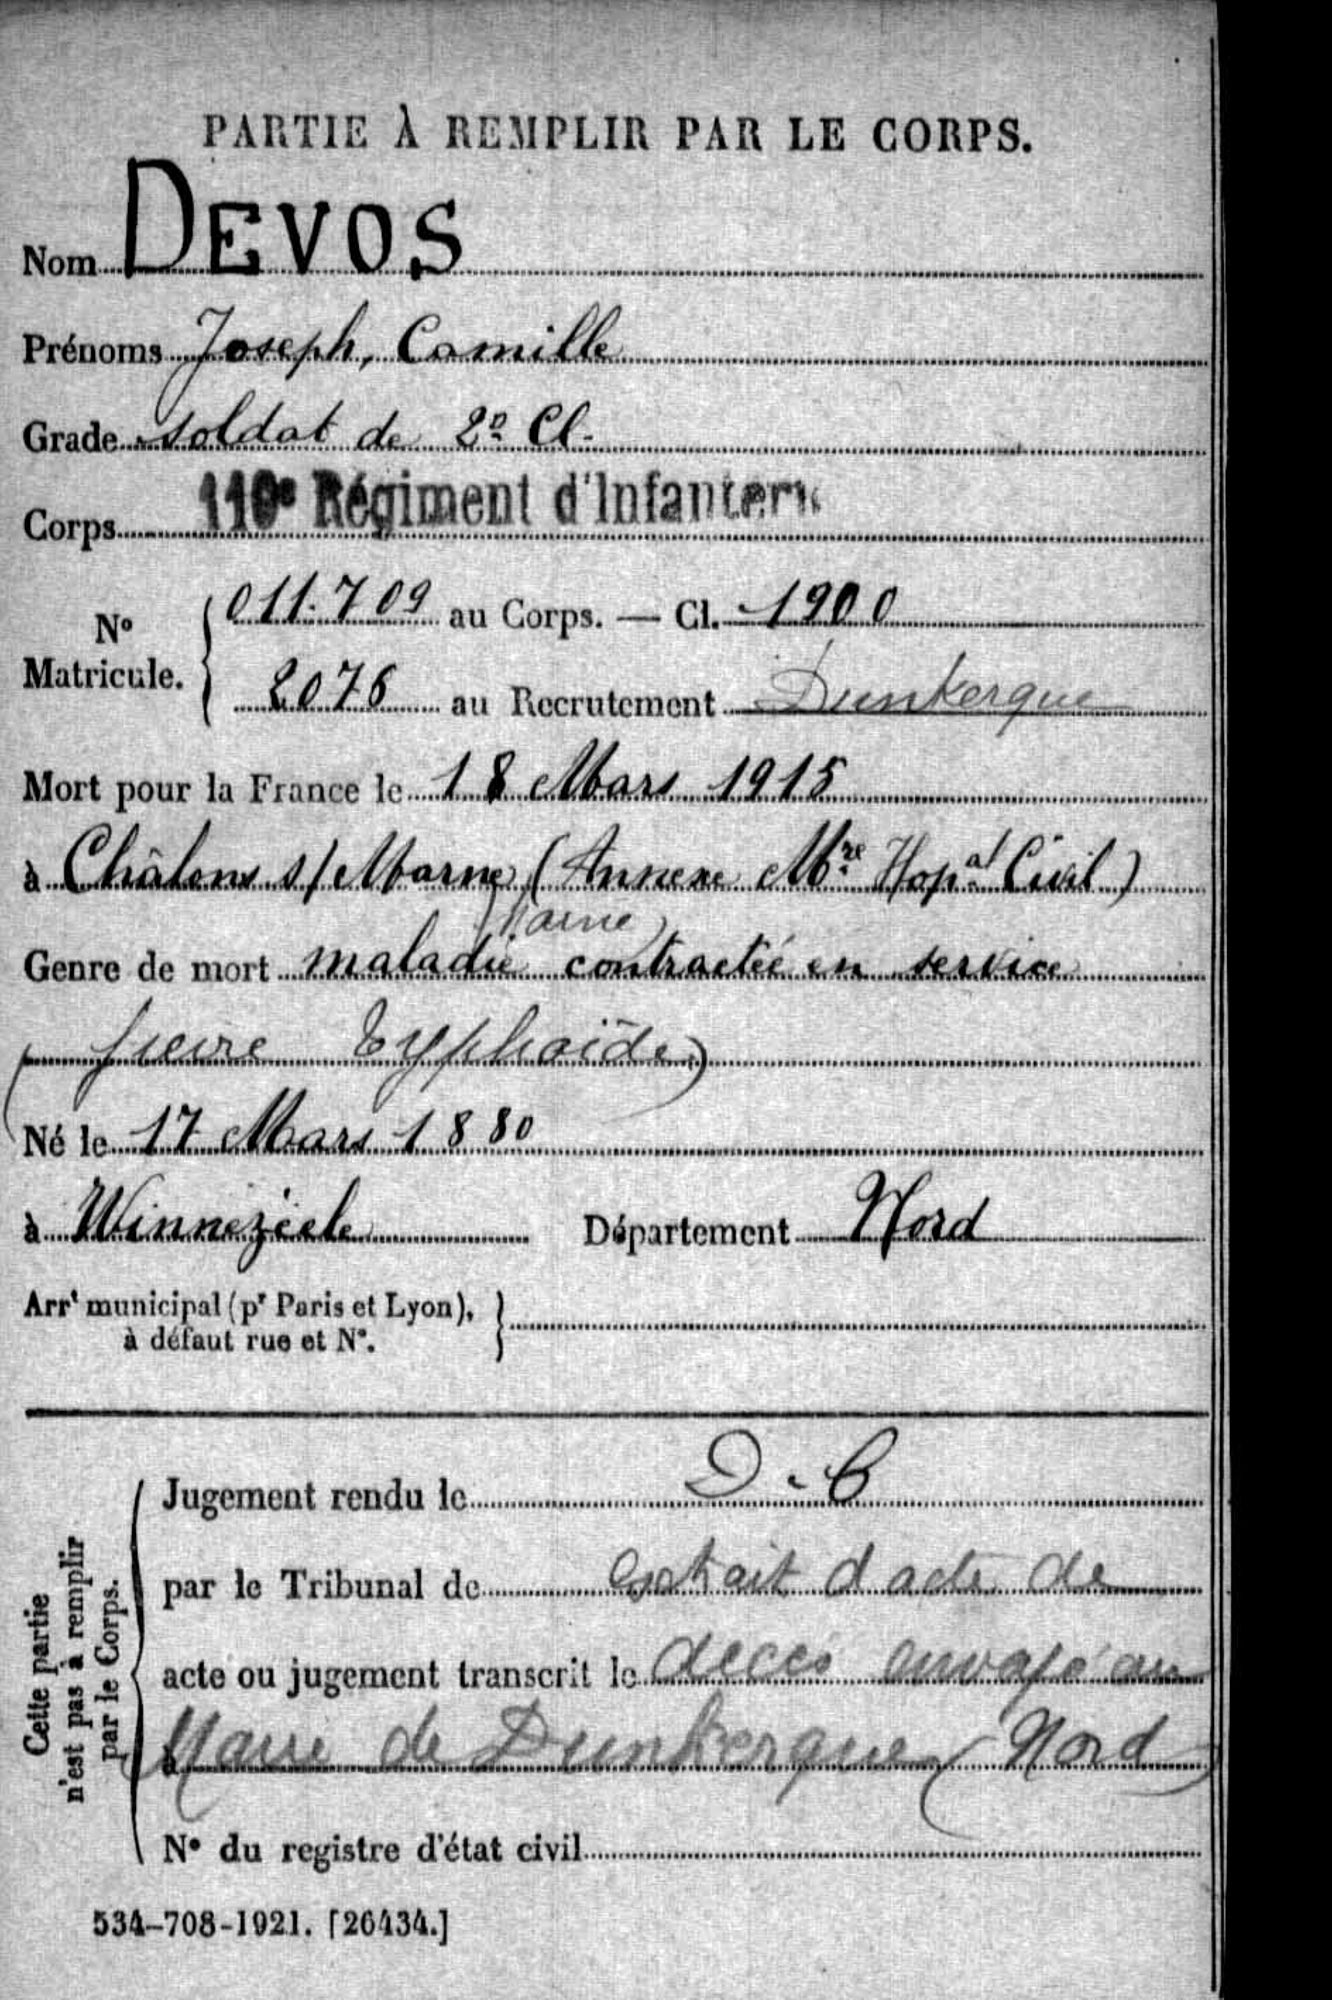 PARTIE À REMPLIR PAR LE CORPS.
Nom DEVOS
Prénoms Joseph, Camille
Grade soldat de 2e Cl.
Corps 110e Régiment d'Infanterie
N° Matricule. 011.709 au Corps. — Cl. 1900
2076 au Recrutement Dunkerque
Mort pour la France le 18 Mars 1915
à Châlons s/Marne (Annexe Mre Hopal Civil)
(Marne)
Genre de mort maladie contractée en service
(fievre Typhoïde)
Né le 17 Mars 1880
à Winnezéele Département Nord
Arrt municipal (pr Paris et Lyon),
à défaut rue et N°.
Cette partie
n'est pas à remplir
par le Corps.
Jugement rendu le D.C
par le Tribunal de extrait d acte de
acte ou jugement transcrit le décès envoyé au
à Maire de Dunkerque (Nord)
N° du registre d'état civil
534-708-1921. [26434.]